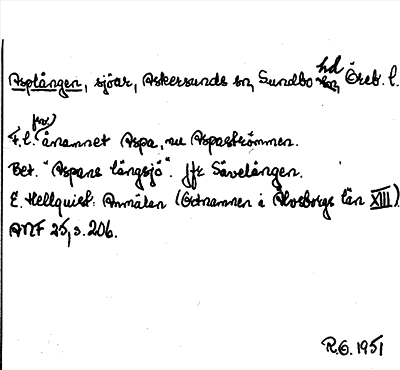 Asplången, sjöar, Askersunds sn, Sundbo hd Öreb. l.
F.l. (fsv) ånamnet Aspa, nu Aspaströmmen.
Bet. "Aspans långsjö". Jfr Sävelången.
E. Hellquist: Anmälan (Ortnamnen i Älvsborgs län XIII)
ANF 25, s. 206.
R.O. 1951